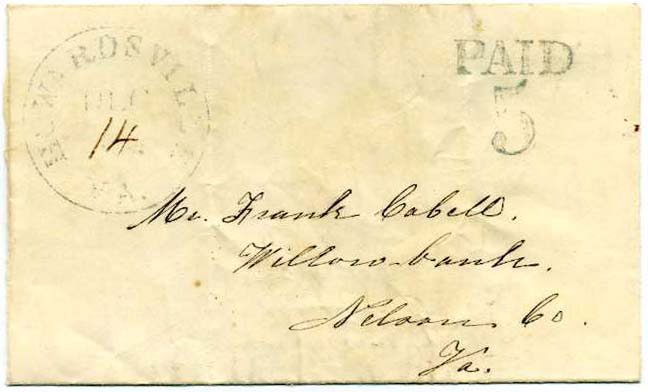 HOWARDSVILLE
DEC
14
VA.
PAID
5
Mr. Frank Cabell.
Willow-bank.
Nelson Co.
Va.